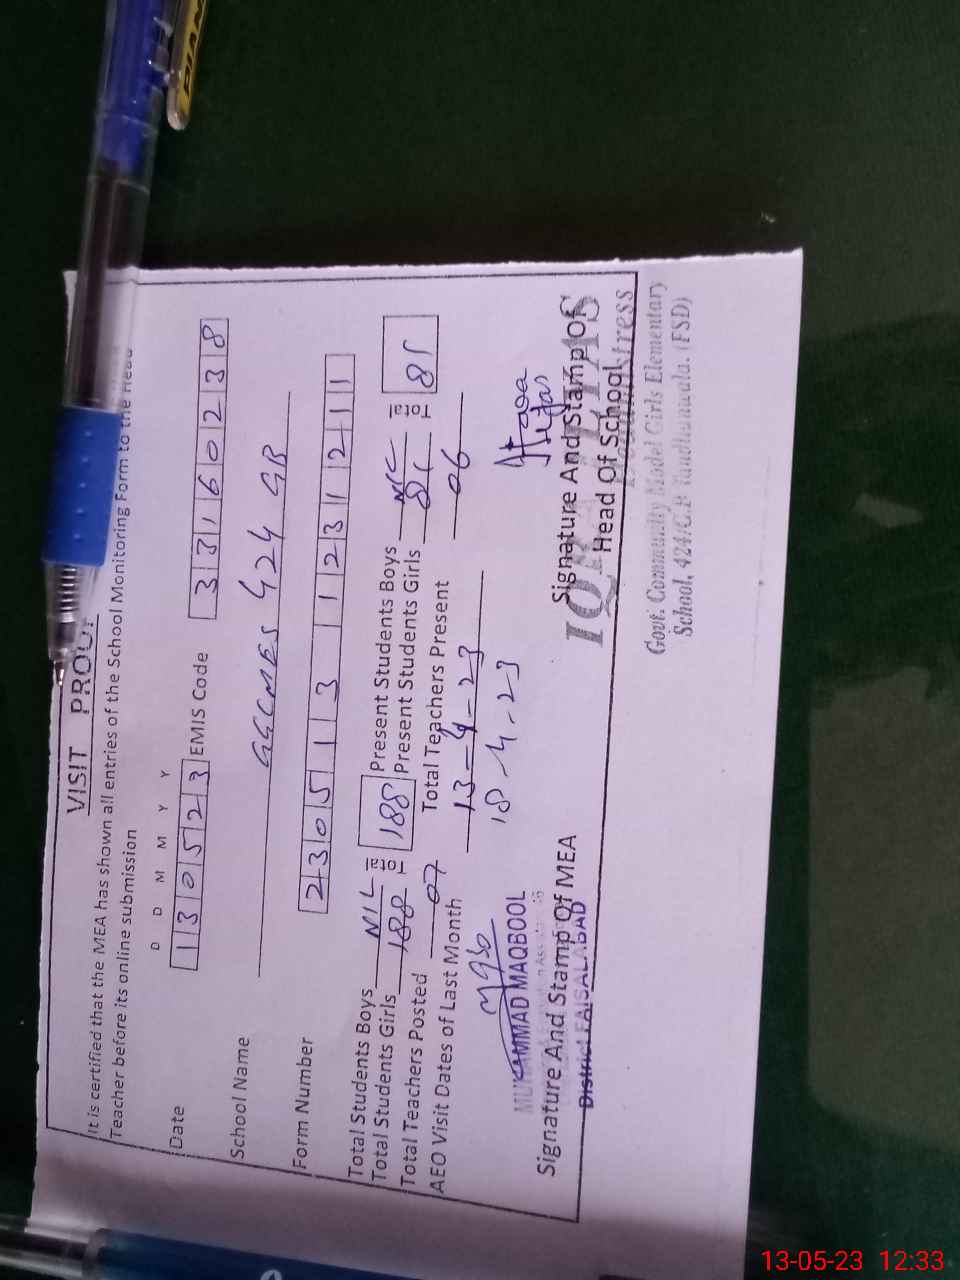 PIANO
VISIT PROOF
It is certified that the MEA has shown all entries of the School Monitoring Form to the Head
Teacher before its online submission
D D M M Y Y
Date 130523 EMIS Code 33160238
School Name GGCMES 424 GB
Form Number 2305113 1231211
Total Students Boys NIL Total Present Students Boys NIL Total
Total Students Girls 188 188 Present Students Girls 81 81
Total Teachers Posted 07 Total Teachers Present 06
AEO Visit Dates of Last Month 13-4-23
18-4-23
MUHAMMAD MAQBOOL
Signature And Stamp Of MEA
District FAISALABAD
Signature And Stamp Of
Head Of School
Headmistress
Govt. Community Model Girls Elementary
School, 424/G.B (FSD)
13-05-23 12:33